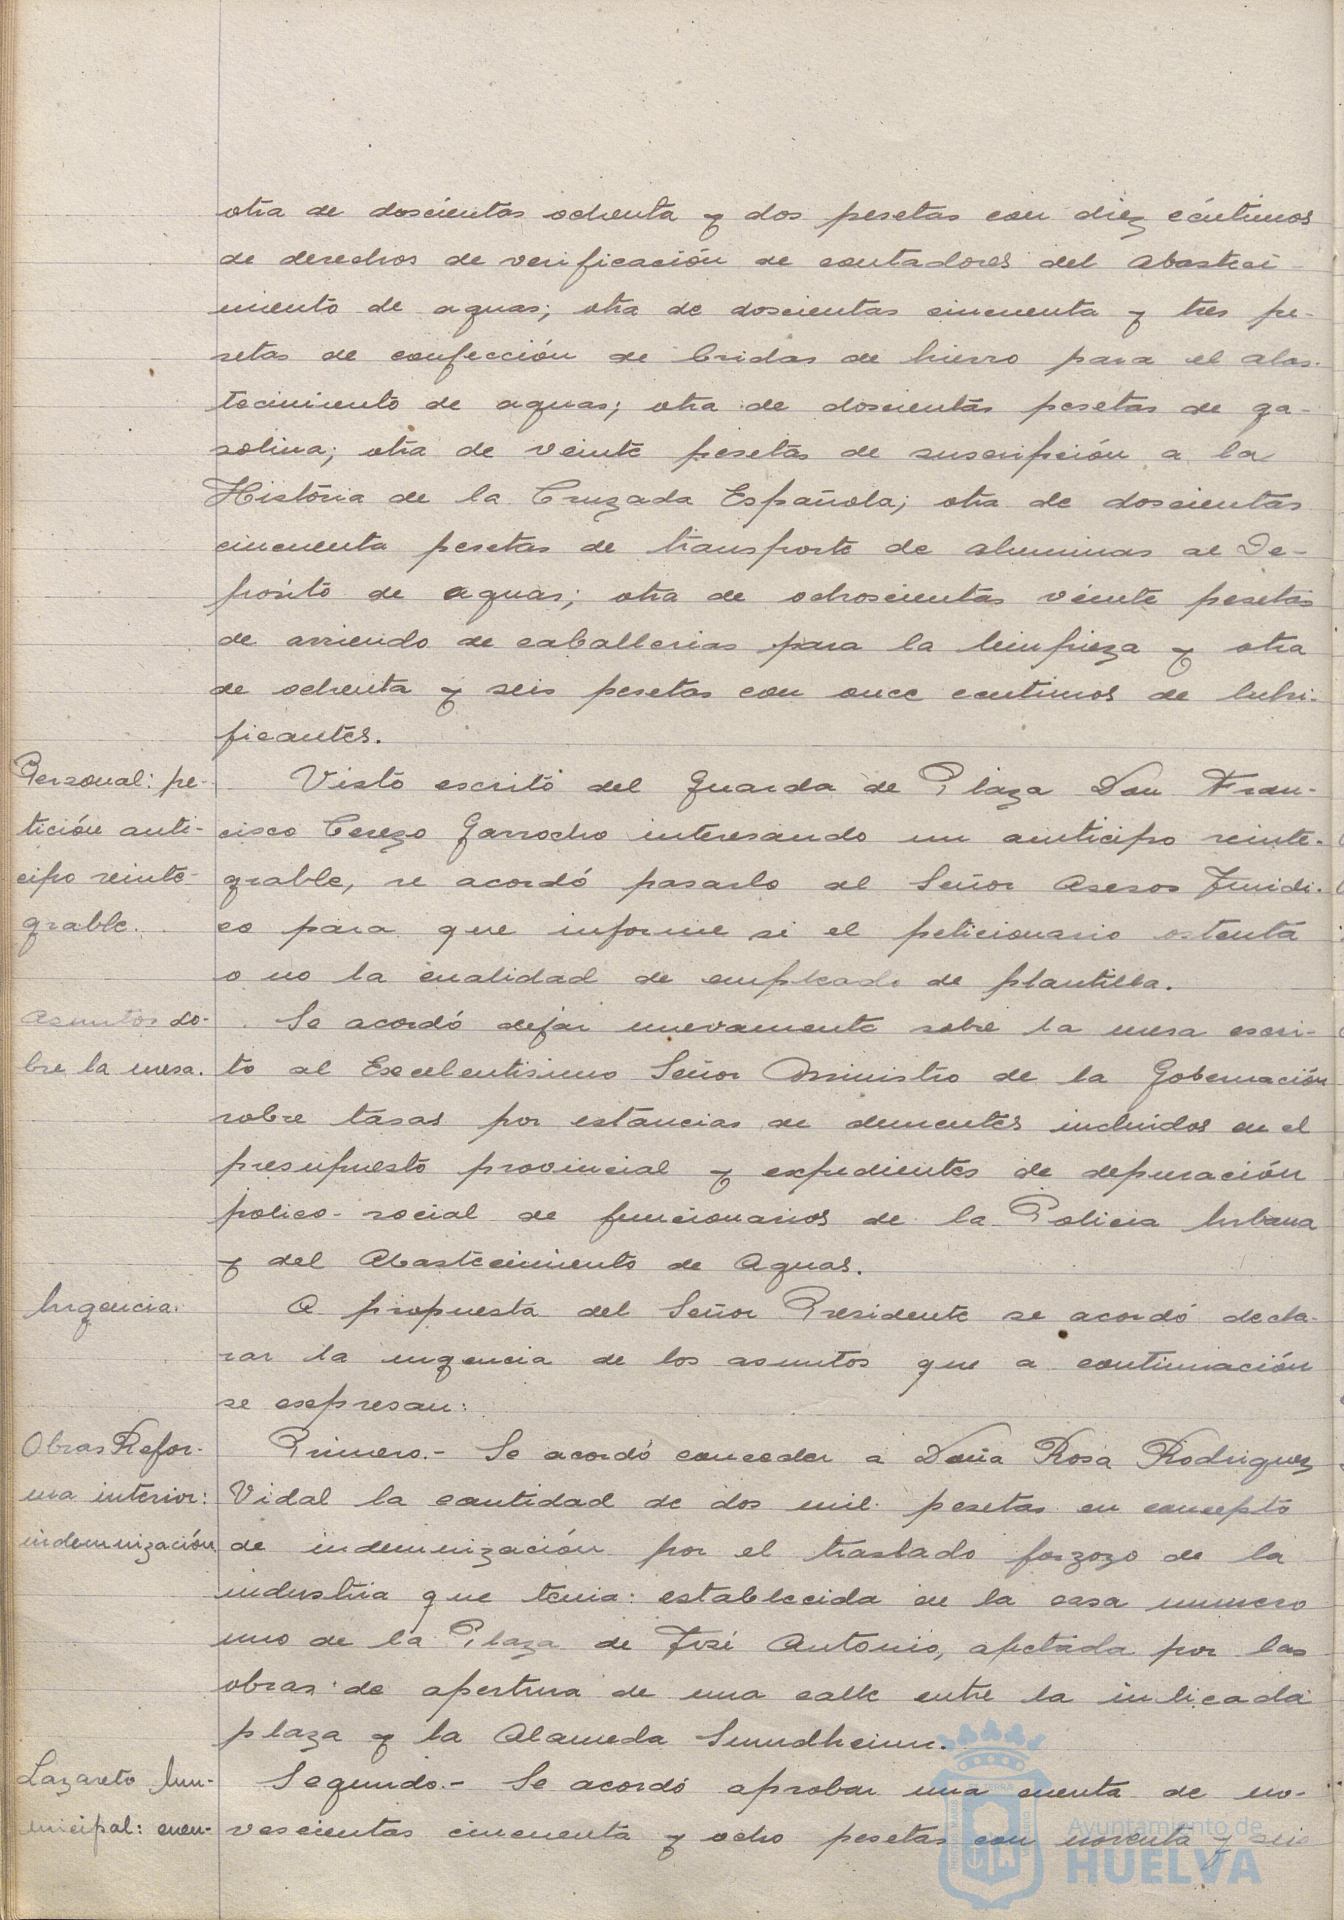 otra de doscientas ochenta y dos pesetas con diez céntimos
de derechos de verificación de contadores del Abasteci-
miento de aguas; otra de doscientas cincuenta y tres pe-
setas de confección de bridas de hierro para el abas-
tecimiento de aguas; otra de doscientas pesetas de ga-
solina; otra de veinte pesetas de suscripción a la
História de la Cruzada Española; otra de doscientas
cincuenta pesetas de transporte de aluminas al De-
pósito de aguas; otra de ochoscientas veinte pesetas
de arriendo de caballerias para la limpieza y otra
de ochenta y seis pesetas con once centimos de lubri-
ficantes.
Personal: pe-
tición anti-
cipo reinte-
grable.
Visto escrito del Guarda de Plaza Don Fran-
cisco Cerezo Garrocho interesando un anticipo reinte-
grable, se acordó pasarlo al Señor Asesor Juridi-
co para que informe si el peticionario ostenta
o no la cualidad de empleado de plantilla.
Asuntos so-
bre la mesa.
Se acordó dejar nuevamente sobre la mesa escri-
to al Excelentisimo Señor Ministro de la Gobernación
sobre tasas por estancias de dementes incluidos en el
presupuesto provincial y expedientes de depuración
polico-social de funcionarios de la Policia Urbana
y del Abastecimiento de Aguas.
Urgencia.
A propuesta del Señor Presidente se acordó decla-
rar la urgencia de los asuntos que a continuación
se expresan:
Obras Refor-
ma interior:
indemnización
Primero.- Se acordó conceder a Doña Rosa Rodriguez
Vidal la cantidad de dos mil pesetas en concepto
de indemnización por el traslado forzozo de la
industria que tenia establecida en la casa numero
uno de la Plaza de José Antonio, afectada por las
obras de apertura de una calle entre la indicada
plaza y la Alameda Sundheim.
Lazareto Mu-
nicipal: cuen-
Segundo.- Se acordó aprobar una cuenta de no-
vescientas cincuenta y ocho pesetas con noventa y seis
Ayuntamiento de
HUELVA